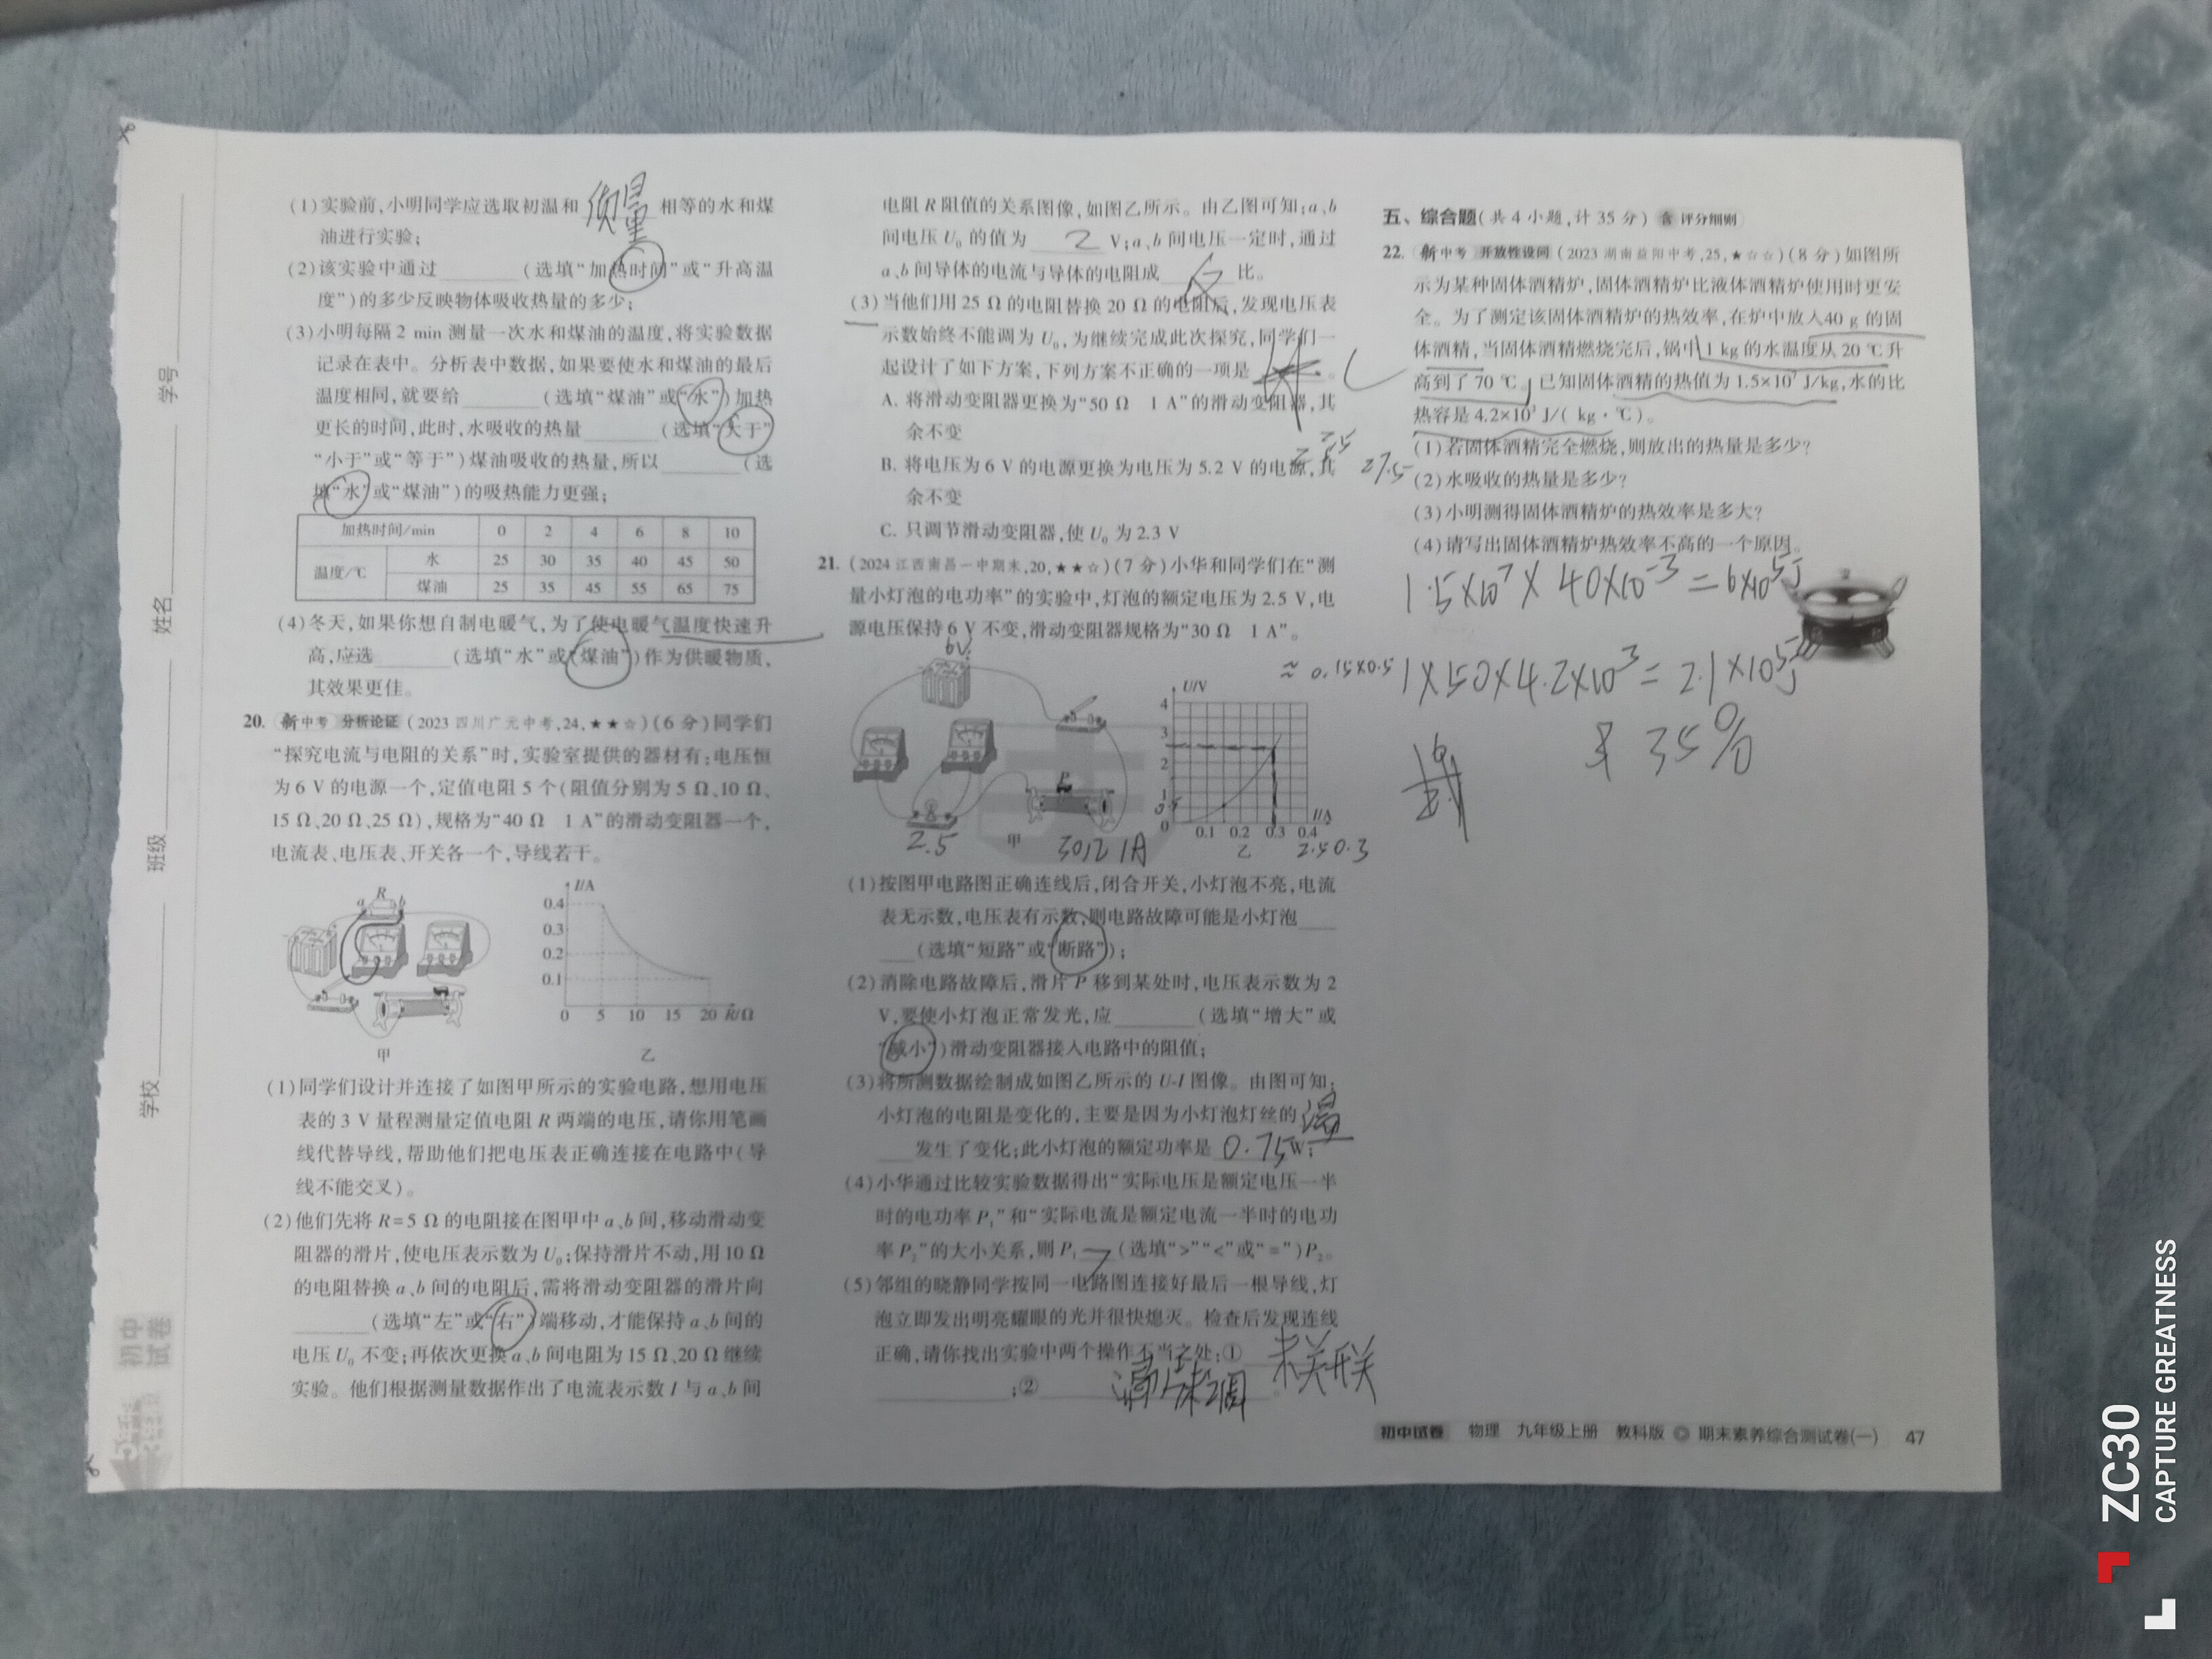 学号
姓名
班级
学校
初中
试卷
(1)实验前,小明同学应选取初温和 质量 相等的水和煤
油进行实验;
(2)该实验中通过________(选填“加热时间”或“升高温
度”)的多少反映物体吸收热量的多少;
(3)小明每隔 2 min 测量一次水和煤油的温度,将实验数据
记录在表中。分析表中数据,如果要使水和煤油的最后
温度相同,就要给________(选填“煤油”或“水”)加热
更长的时间,此时,水吸收的热量________(选填“大于”
“小于”或“等于”)煤油吸收的热量,所以________(选
填“水”或“煤油”)的吸热能力更强;
加热时间/min 0 2 4 6 8 10
温度/℃ 水 25 30 35 40 45 50
煤油 25 35 45 55 65 75
(4)冬天,如果你想自制电暖气,为了使电暖气温度快速升
高,应选________(选填“水”或“煤油”)作为供暖物质,
其效果更佳。
20. 新中考 分析论证 (2023 四川广元中考,24,★★☆)(6 分)同学们
“探究电流与电阻的关系”时,实验室提供的器材有:电压恒
为 6 V 的电源一个,定值电阻 5 个(阻值分别为 5 Ω、10 Ω、
15 Ω、20 Ω、25 Ω),规格为“40 Ω 1 A”的滑动变阻器一个,
电流表、电压表、开关各一个,导线若干。
R
a b
甲
I/A
0.4
0.3
0.2
0.1
0 5 10 15 20 R/Ω
乙
(1)同学们设计并连接了如图甲所示的实验电路,想用电压
表的 3 V 量程测量定值电阻 R 两端的电压,请你用笔画
线代替导线,帮助他们把电压表正确连接在电路中(导
线不能交叉)。
(2)他们先将 R=5 Ω 的电阻接在图甲中 a、b 间,移动滑动变
阻器的滑片,使电压表示数为 U₀;保持滑片不动,用 10 Ω
的电阻替换 a、b 间的电阻后,需将滑动变阻器的滑片向
________(选填“左”或“右”)端移动,才能保持 a、b 间的
电压 U₀ 不变;再依次更换 a、b 间电阻为 15 Ω、20 Ω 继续
实验。他们根据测量数据作出了电流表示数 I 与 a、b 间
电阻 R 阻值的关系图像,如图乙所示。由乙图可知:a、b
间电压 U₀ 的值为 2 V;a、b 间电压一定时,通过
a、b 间导体的电流与导体的电阻成 反 比。
(3)当他们用 25 Ω 的电阻替换 20 Ω 的电阻后,发现电压表
示数始终不能调为 U₀,为继续完成此次探究,同学们一
起设计了如下方案,下列方案不正确的一项是________。
C
A. 将滑动变阻器更换为“50 Ω 1 A”的滑动变阻器,其
余不变
B. 将电压为 6 V 的电源更换为电压为 5.2 V 的电源,其
27.5
余不变
C. 只调节滑动变阻器,使 U₀ 为 2.3 V
21. (2024 江西南昌一中期末,20,★★☆)(7 分)小华和同学们在“测
量小灯泡的电功率”的实验中,灯泡的额定电压为 2.5 V,电
源电压保持 6 V 不变,滑动变阻器规格为“30 Ω 1 A”。
6V
P
2.5
甲
30Ω 1A
≈ 0.15×0.5
U/V
4
3
2
1
0.5
0 0.1 0.2 0.3 0.4 I/A
乙
2.5 0.3
(1)按图甲电路图正确连线后,闭合开关,小灯泡不亮,电流
表无示数,电压表有示数,则电路故障可能是小灯泡____
____(选填“短路”或“断路”);
(2)消除电路故障后,滑片 P 移到某处时,电压表示数为 2
V,要使小灯泡正常发光,应________(选填“增大”或
“减小”)滑动变阻器接入电路中的阻值;
(3)将所测数据绘制成如图乙所示的 U-I 图像。由图可知,
小灯泡的电阻是变化的,主要是因为小灯泡灯丝的 温
____发生了变化;此小灯泡的额定功率是 0.75 W;
(4)小华通过比较实验数据得出“实际电压是额定电压一半
时的电功率 P₁”和“实际电流是额定电流一半时的电功
率 P₂”的大小关系,则 P₁ > (选填“>”“<”或“=”)P₂。
(5)邻组的晓静同学按同一电路图连接好最后一根导线,灯
泡立即发出明亮耀眼的光并很快熄灭。检查后发现连线
正确,请你找出实验中两个操作不当之处:① 未关开关
;② 滑片未调
五、综合题(共 4 小题,计 35 分) 含 评分细则
22. 新中考 开放性设问 (2023 湖南益阳中考,25,★☆☆)(8 分)如图所
示为某种固体酒精炉,固体酒精炉比液体酒精炉使用时更安
全。为了测定该固体酒精炉的热效率,在炉中放入 40 g 的固
体酒精,当固体酒精燃烧完后,锅中 1 kg 的水温度从 20 ℃升
高到了 70 ℃。已知固体酒精的热值为 1.5×10⁷ J/kg,水的比
热容是 4.2×10³ J/(kg·℃)。
(1)若固体酒精完全燃烧,则放出的热量是多少?
(2)水吸收的热量是多少?
(3)小明测得固体酒精炉的热效率是多大?
(4)请写出固体酒精炉热效率不高的一个原因。
1.5×10⁷×40×10⁻³=6×10⁵J
1×50×4.2×10³=2.1×10⁵J
35%
初中试卷 物理 九年级上册 教科版 期末素养综合测试卷(一) 47
ZC30
CAPTURE GREATNESS